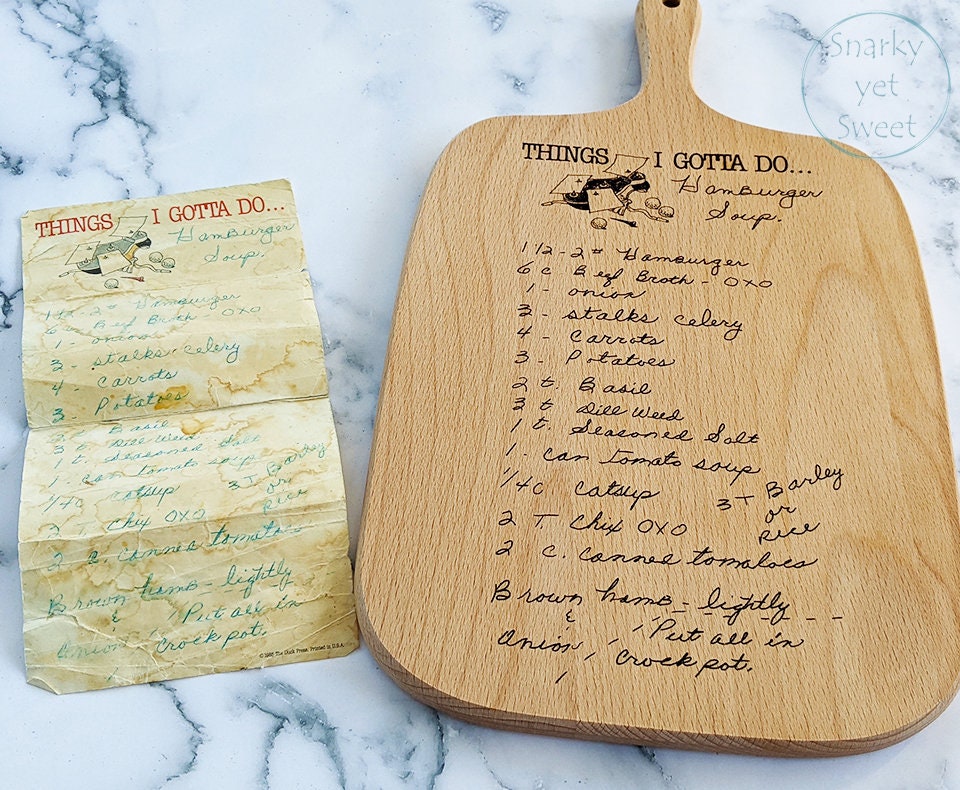 Snarky
yet
Sweet
THINGS I GOTTA DO...
HamBurger
Soup.
1 1/2 - 2 # Hamburger
6 c Beef Broth - OXO
1 - onion
3 - stalks celery
4 - Carrots
3 - Potatoes
2 t. Basil
3 t Dill Weed
1 t. Seasoned Salt
1 - can tomato soup
1/4 c catsup
3 T Barley
or
Rice
2 T. Chix OXO
2 c. canned tomatoes
Brown hamb - lightly
& , , Put all in
Onion , Crock pot.
© 1985 The Duck Press. Printed in U.S.A.
THINGS I GOTTA DO...
HamBurger
Soup.
1 1/2 - 2 # Hamburger
6 c Beef Broth - OXO
1 - onion
3 - stalks celery
4 - Carrots
3 - Potatoes
2 t. Basil
3 t Dill Weed
1 t. Seasoned Salt
1 - can tomato soup
1/4 c catsup
3 T Barley
or
Rice
2 T. Chix OXO
2 c. canned tomatoes
Brown hamb - lightly
& , , Put all in
Onion , Crock pot.